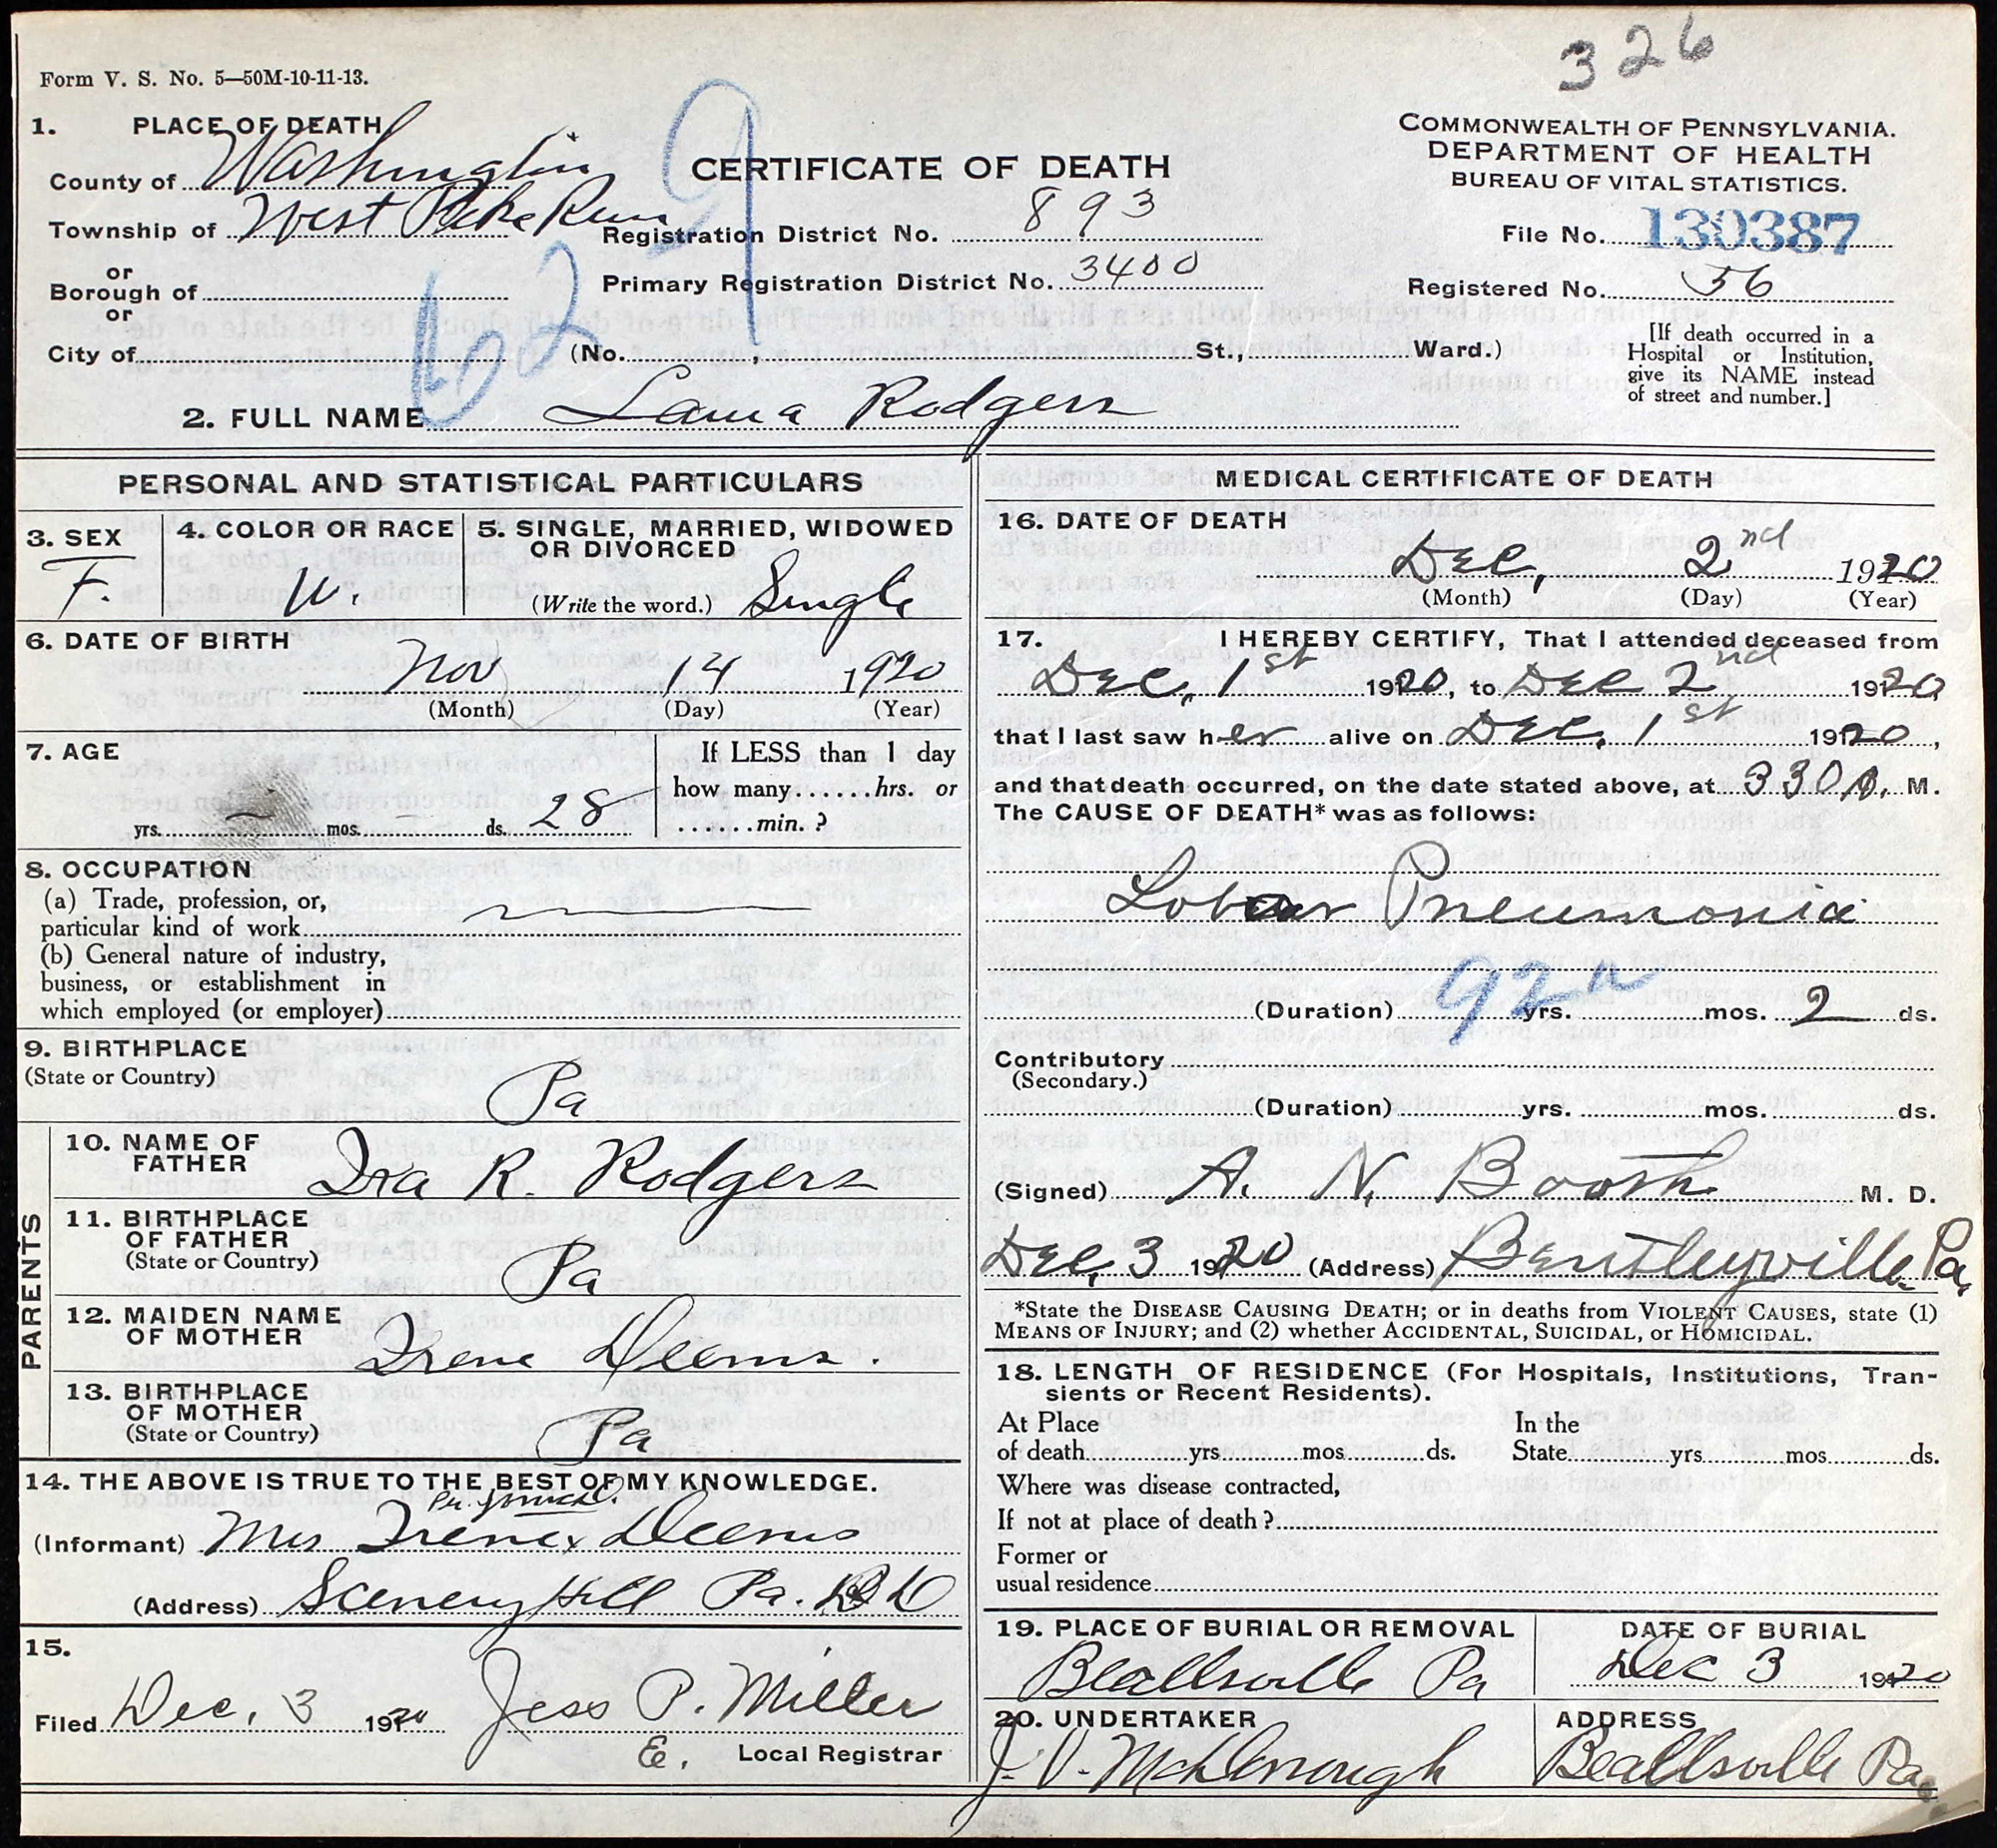 326
Form V. S. No. 5—50M-10-11-13.
1. PLACE OF DEATH
County of Washington
Township of West Pike Run
or
Borough of
or
City of
629
CERTIFICATE OF DEATH
Registration District No. 893
Primary Registration District No. 3400
(No. , St., Ward.)
COMMONWEALTH OF PENNSYLVANIA.
DEPARTMENT OF HEALTH
BUREAU OF VITAL STATISTICS.
File No. 130387
Registered No. 56
[If death occurred in a
Hospital or Institution,
give its NAME instead
of street and number.]
2. FULL NAME Laura Rodgers
PERSONAL AND STATISTICAL PARTICULARS
3. SEX
F.
4. COLOR OR RACE
W.
5. SINGLE, MARRIED, WIDOWED
OR DIVORCED
(Write the word.) Single
6. DATE OF BIRTH
Nov 14 1920
(Month) (Day) (Year)
7. AGE
yrs. mos. ds. 28
If LESS than 1 day
how many...... hrs. or
...... min. ?
8. OCCUPATION
(a) Trade, profession, or,
particular kind of work
(b) General nature of industry,
business, or establishment in
which employed (or employer)
9. BIRTHPLACE
(State or Country)
Pa
PARENTS
10. NAME OF
FATHER
Ira R. Rodgers
11. BIRTHPLACE
OF FATHER
(State or Country)
Pa
12. MAIDEN NAME
OF MOTHER
Irene Deems.
13. BIRTHPLACE
OF MOTHER
(State or Country)
Pa
14. THE ABOVE IS TRUE TO THE BEST OF MY KNOWLEDGE.
(Informant) Mrs Irene x Deems
(Address) Scenery Hill Pa.
15.
Filed Dec. 3 1920 Jess P. Miller
Local Registrar
MEDICAL CERTIFICATE OF DEATH
16. DATE OF DEATH
Dec, 2nd 1920
(Month) (Day) (Year)
17. I HEREBY CERTIFY, That I attended deceased from
Dec, 1st 1920, to Dec 2nd 1920
that I last saw her alive on Dec, 1st 1920,
and that death occurred, on the date stated above, at 330 A. M.
The CAUSE OF DEATH* was as follows:
Lobar Pneumonia
92a
(Duration) yrs. mos. 2 ds.
Contributory
(Secondary.)
(Duration) yrs. mos. ds.
(Signed) A. N. Booth M. D.
Dec, 3 1920 (Address) Bentleyville Pa,
*State the DISEASE CAUSING DEATH; or in deaths from VIOLENT CAUSES, state (1)
MEANS OF INJURY; and (2) whether ACCIDENTAL, SUICIDAL, or HOMICIDAL.
18. LENGTH OF RESIDENCE (For Hospitals, Institutions, Tran-
sients or Recent Residents).
At Place
of death yrs mos. ds.
In the
State yrs. mos ds.
Where was disease contracted,
If not at place of death ?
Former or
usual residence
19. PLACE OF BURIAL OR REMOVAL
Beallsville Pa
DATE OF BURIAL
Dec 3 1920
20. UNDERTAKER
J. V. McDonough
ADDRESS
Beallsville Pa